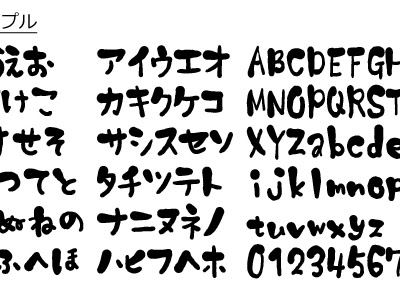 プル
うえお アイウエオ ABCDEFGH
けこ カキクケコ MNOPQRST
すせそ サシスセソ XYZabcde
つてと タチツテト ijklmnop
ぬねの ナニヌネノ tuvwxyz
ふへほ ハヒフヘホ 01234567